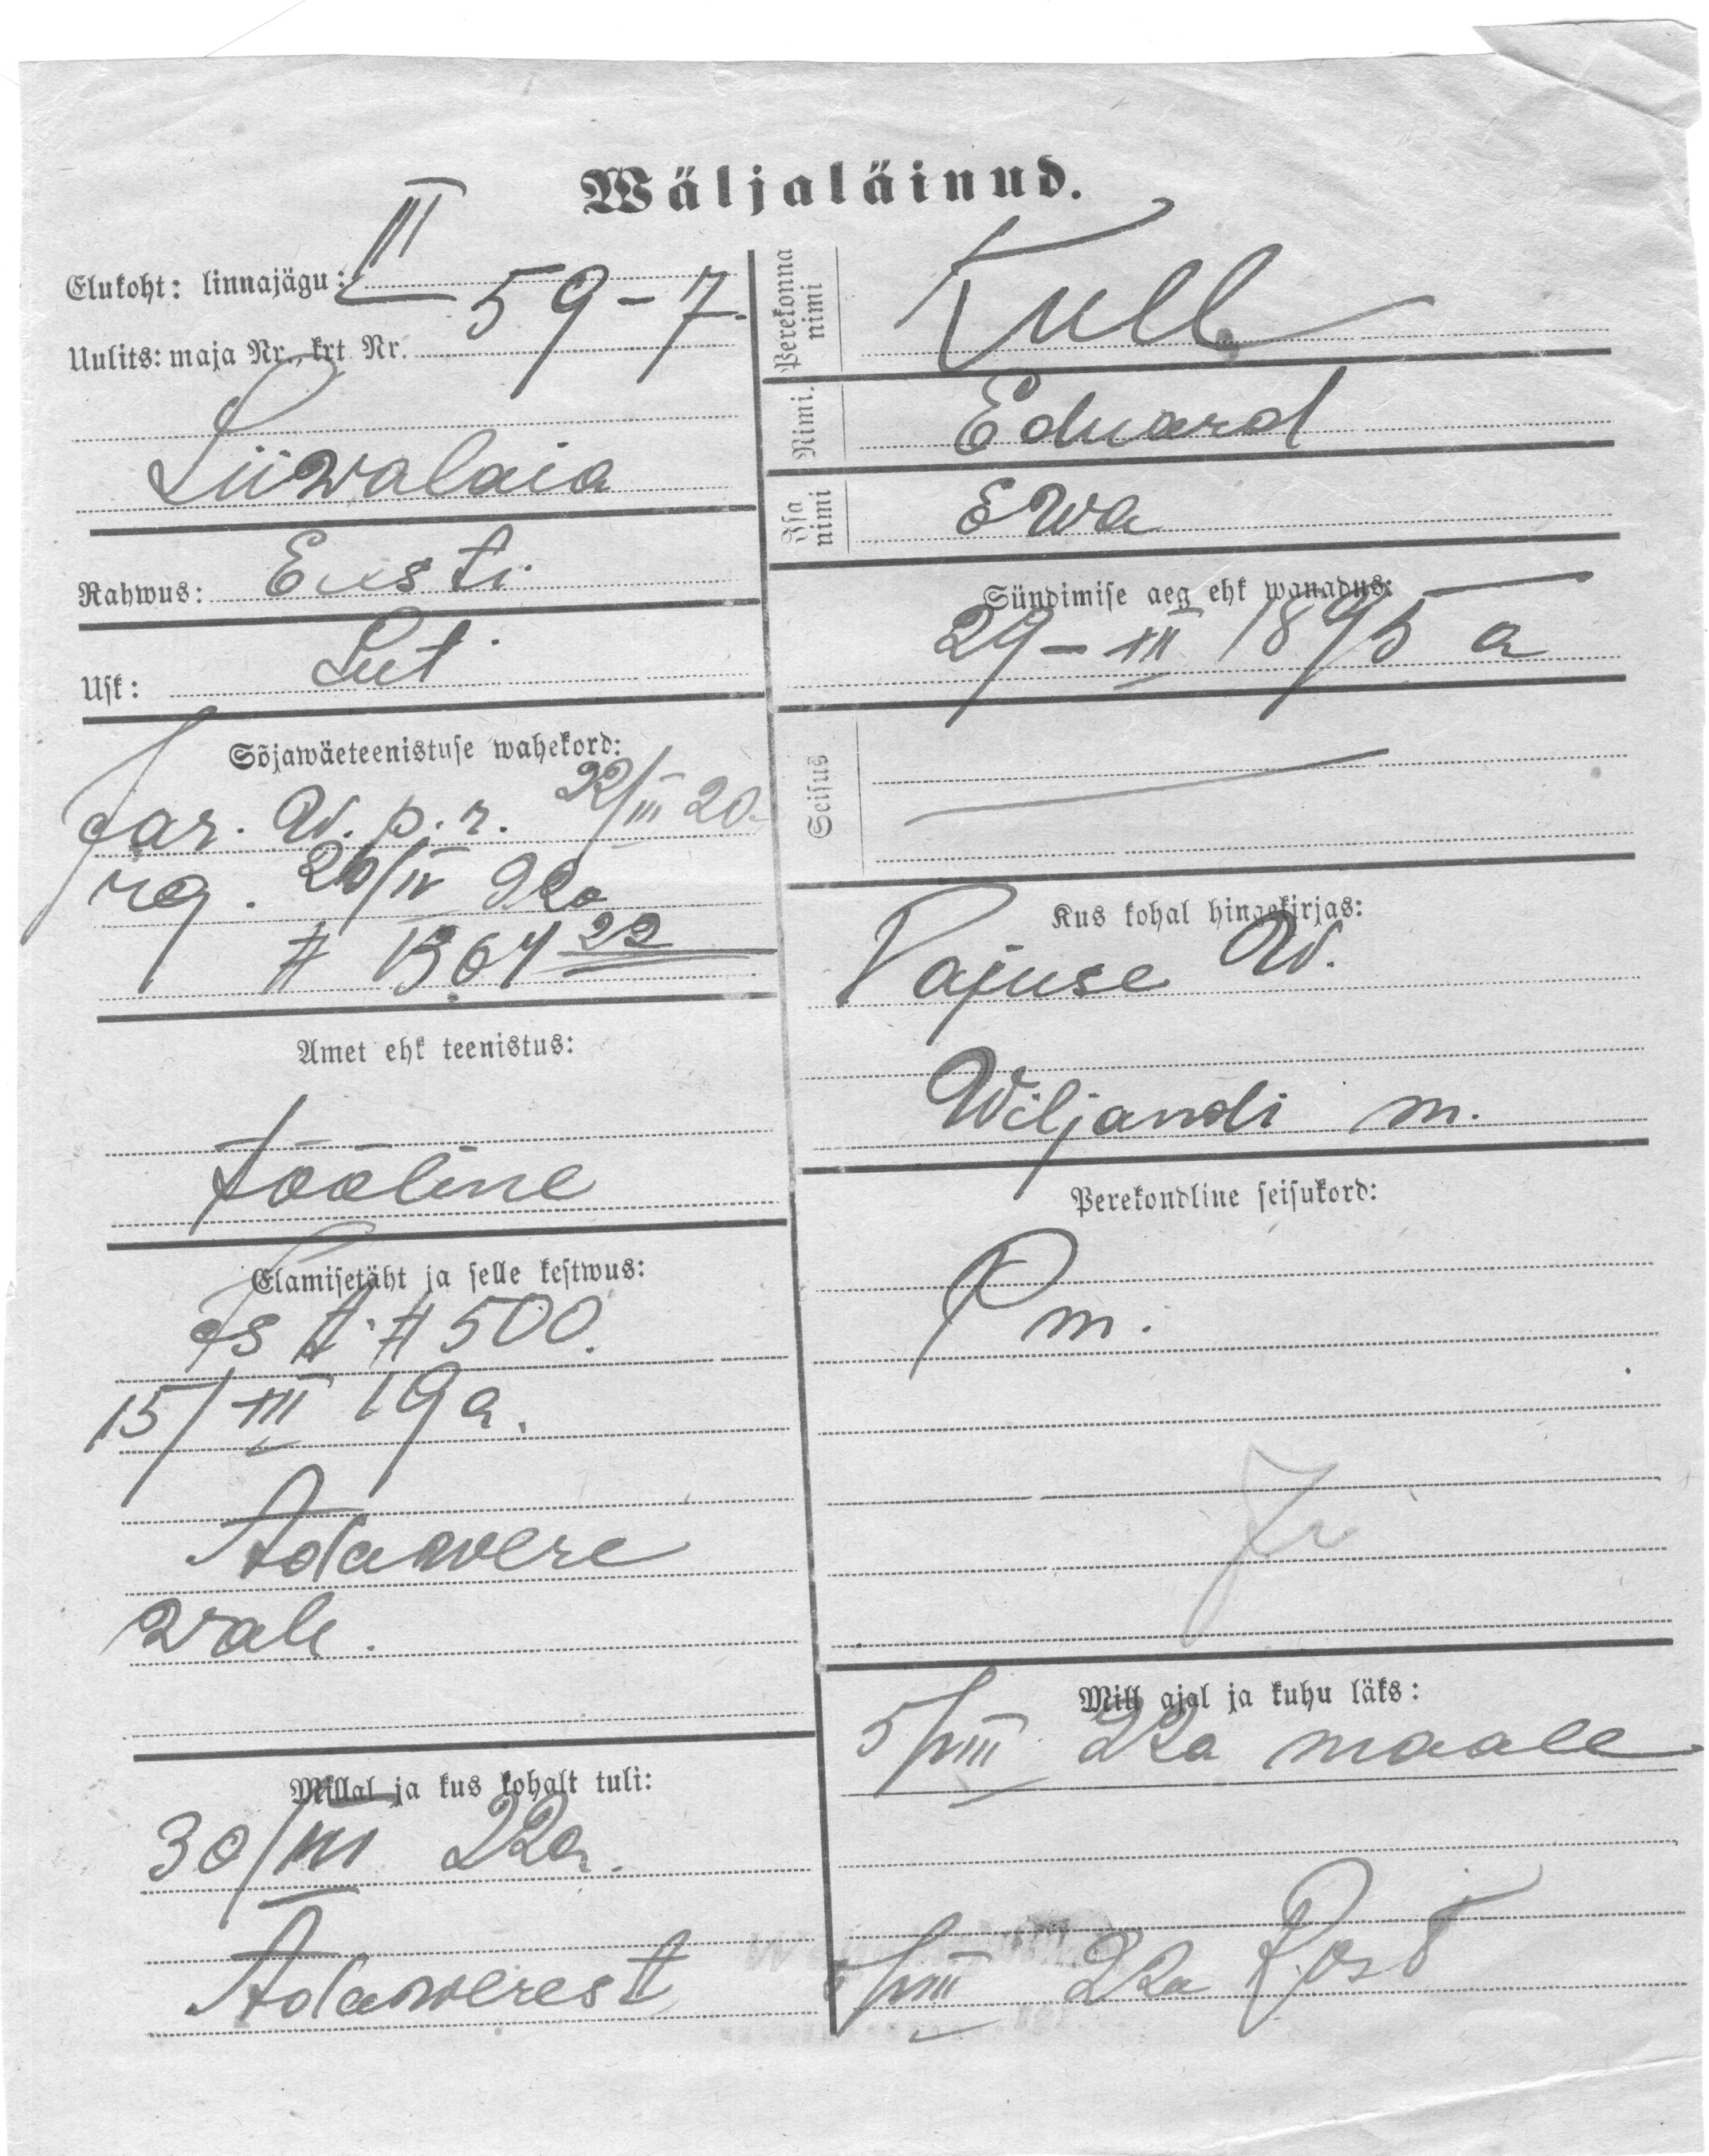 Wäljaläinud.
Elukoht: linnajägu: III
Uulits: maja Nr., krt Nr. 59-7.
Liiwalaia
Rahwus: Eesti
Usk: Lut.
Sõjawäeteenistuse wahekord:
W. p. r. 22/III 20.
# 1364 22
Amet ehk teenistus:
tööline
Elamisetäht ja selle kestwus:
# 500.
15/III 19 a.
Adawere
wal.
Millal ja kus kohalt tuli:
30/III 22a.
Adawerest
Perekonna nimi
Kull
Nimi.
Eduard
Isa nimi
Ewa
Sündimise aeg ehk wanadus:
29-III 1895 a
Seisus
Kus kohal hingekirjas:
Pajuse W.
Wiljandi m.
Perekondline seisukord:
P m.
Mill ajal ja kuhu läks:
5/VIII 22a maale
5/VIII 22a